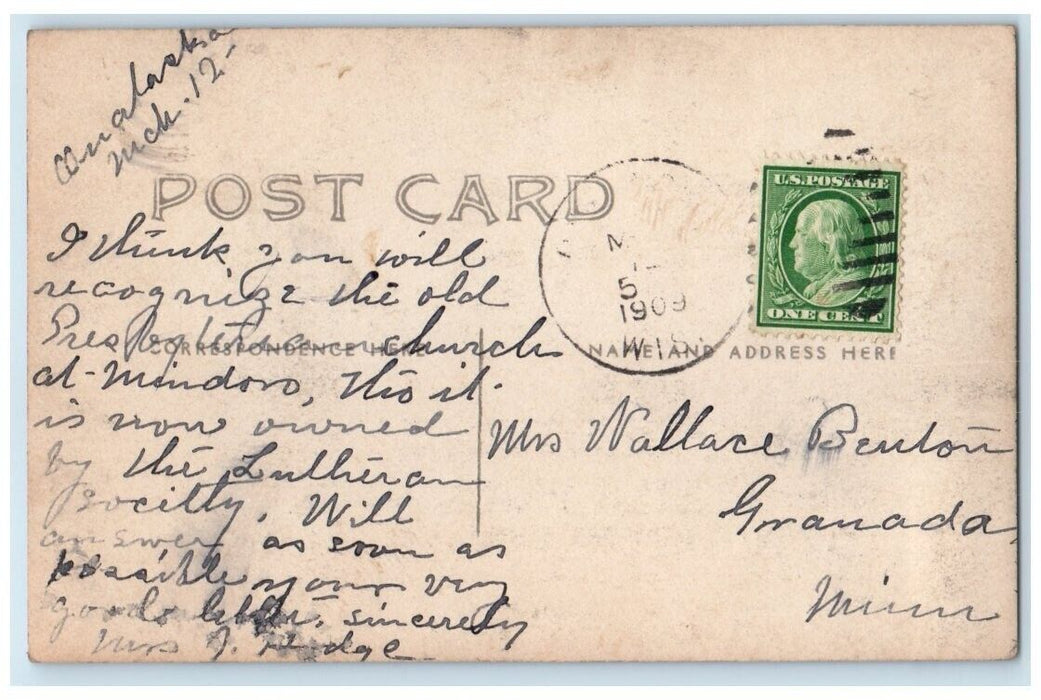 Onalaska
Mch. 12-
POST CARD
I think you will
recognize the old
Presbyterian church
at Mindoro, tho it
is now owned
by the Lutheran
Society. Will
answer as soon as
possible your very
good letter, sincerely
Mrs J. Hodge
CORRESPONDENCE HERE
M
5
1909
WIS.
U.S. POSTAGE
ONE CENT
NAME AND ADDRESS HERE
Mrs Wallace Benton
Granada
Minn